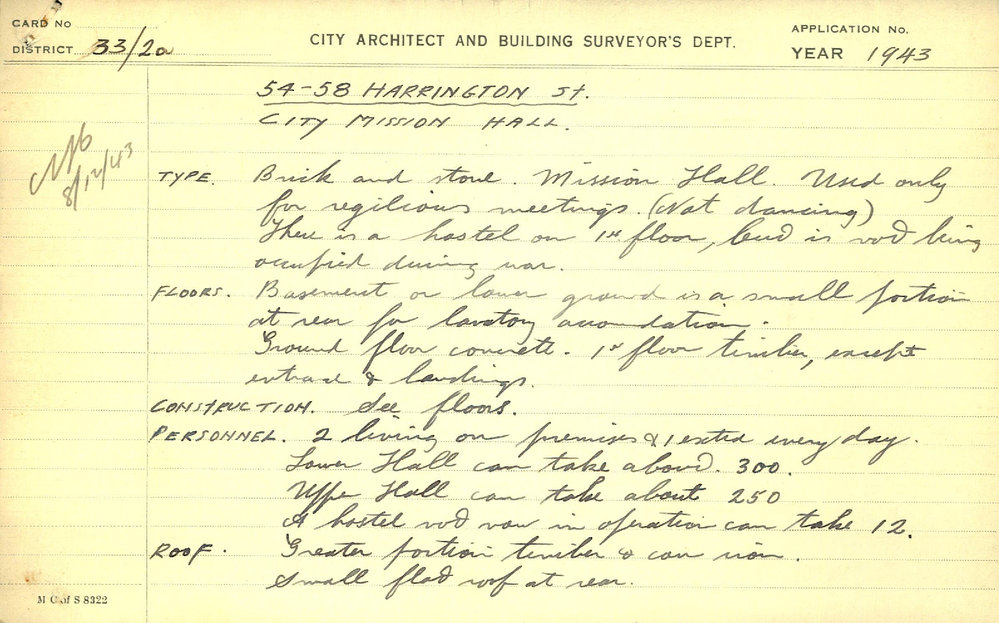 CARD No
DISTRICT 33/2a
CITY ARCHITECT AND BUILDING SURVEYOR'S DEPT.
APPLICATION No.
YEAR 1943
54-58 HARRINGTON St.
CITY MISSION HALL.
8/12/43
TYPE. Brick and stone. Mission Hall. Used only
for regilious meetings. (Not dancing)
There is a hostel on 1st floor, but is not being
occupied during war.
FLOORS. Basement or lower ground is a small portion
at rear for lavatory accomdation.
Ground floor concrete. 1st floor timber, except
entrance & landings.
CONSTRUCTION. See floors.
PERSONNEL. 2 living on premises & 1 extra every day.
Lower Hall can take about 300.
Upper Hall can take about 250
A hostel not now in operation can take 12.
ROOF. Greater portion timber & corr iron.
Small flat roof at rear.
M C of S 8322